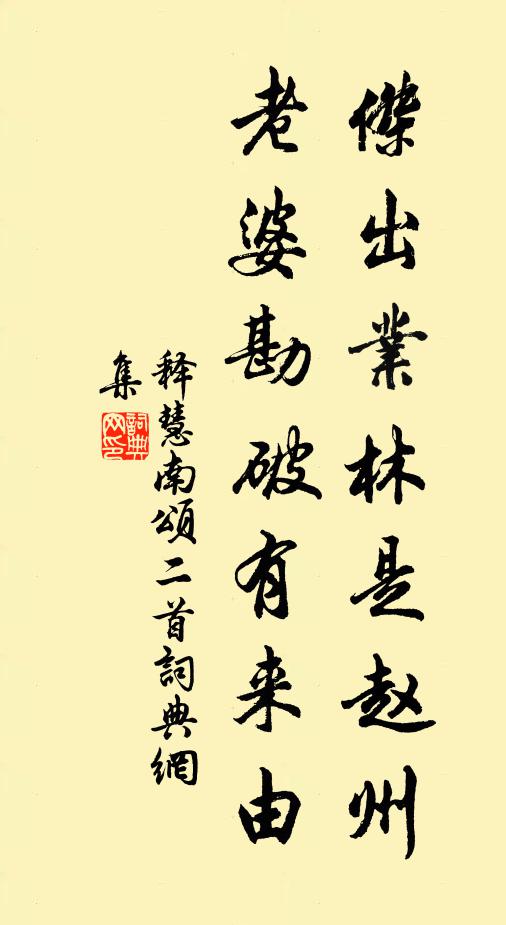 傑出業林是赵州
老婆勘破有来由
释慧南頌二首詞典網
集
詞典
网印